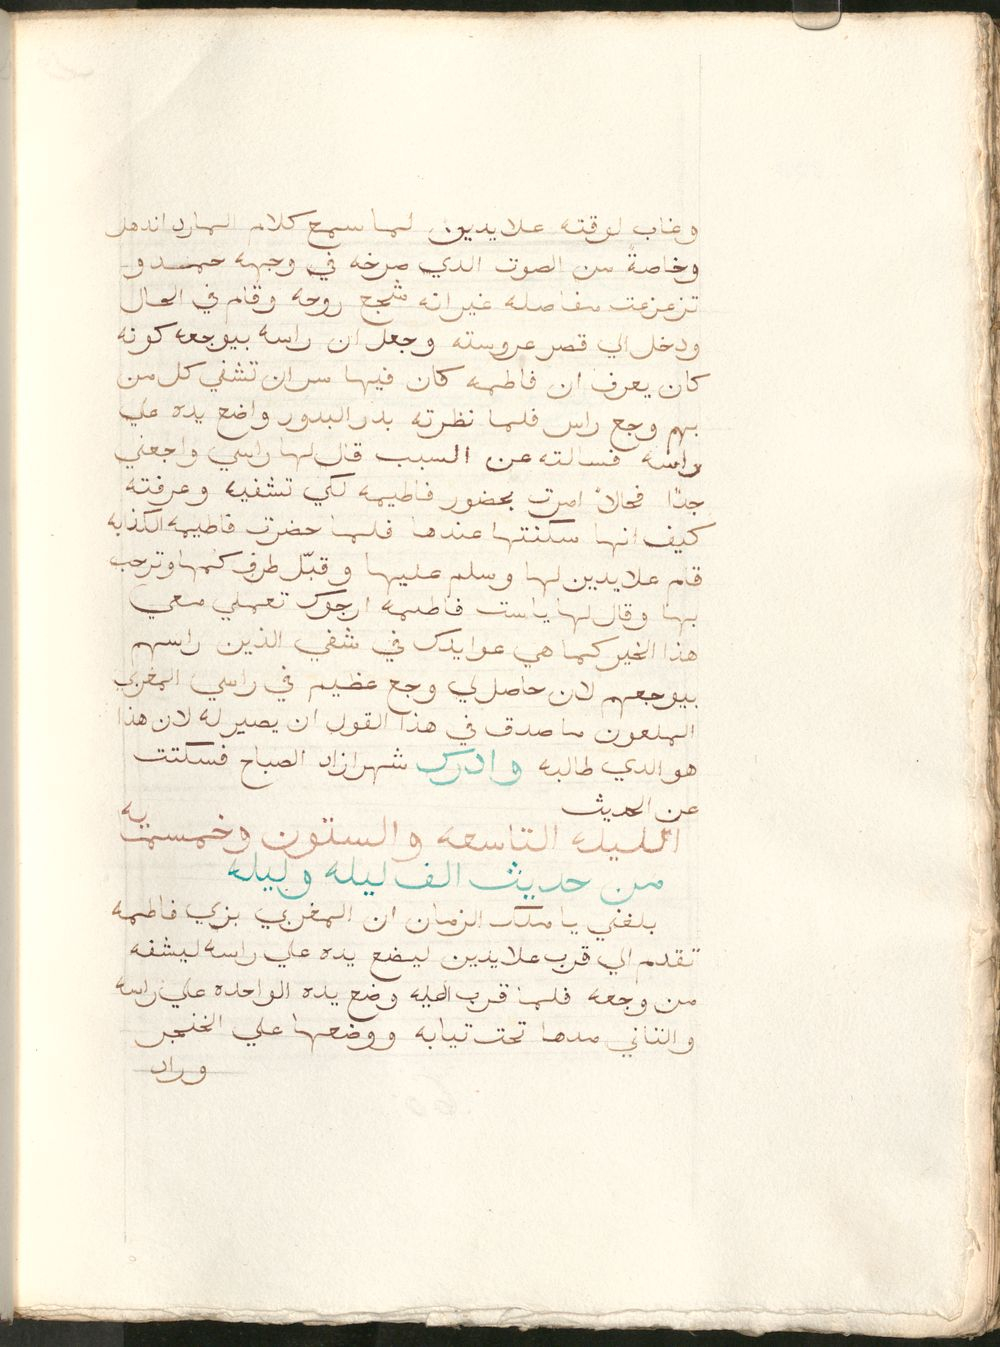 وغاب لوقته علايدين لما سمع كلام المارد اندهل
وخاصةً من الصوت الدي صرخه في وجهه حمد و
تزعزعت مفاصله غير انه شجع روحه وقام في الحال
ودخل الي قصر عروسته وجعل ان راسه بيوجعه كونه
كان يعرف ان فاطمه كان فيها سر ان تشفي كل من
بهم وجع راس فلما نظرته بدر البدور واضع يده علي
راسه فسالته عن السبب قال لها راسي واجعني
جدًا فحالاً امرت بحضور فاطيمه لكي تشفيه وعرفته
كيف انها سكنتها عندها فلما حضرت فاطيمه الكذابه
قام علايدين لها وسلم عليها وقبّل طرف كمها وترحب
بها وقال لها ياست فاطمه ارجوك تعملي معي
هذا الخير كما هي عوايدك في شفي الذين راسهم
بيوجعهم لان حاصل لي وجع عظيم في راسي المغربي
الملعون ما صدق في هذا القول ان يصير له لان هذا
هو الدي طالبه وادرك شهرازاد الصباح فسكتت
عن الحديث
الليله التاسعه والستون وخمسمايه
من حديث الف ليله وليله
بلغني يا ملك الزمان ان المغربي بزي فاطمه
تقدم الي قرب علايدين ليضع يده علي راسه ليشفه
من وجعه فلما قرب اليه وضع يده الواحده علي راسه
والتاني مدها تحت تيابه ووضعها علي الخنجر
وراد